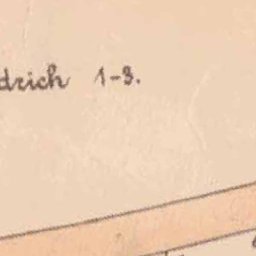 drich 1-3.